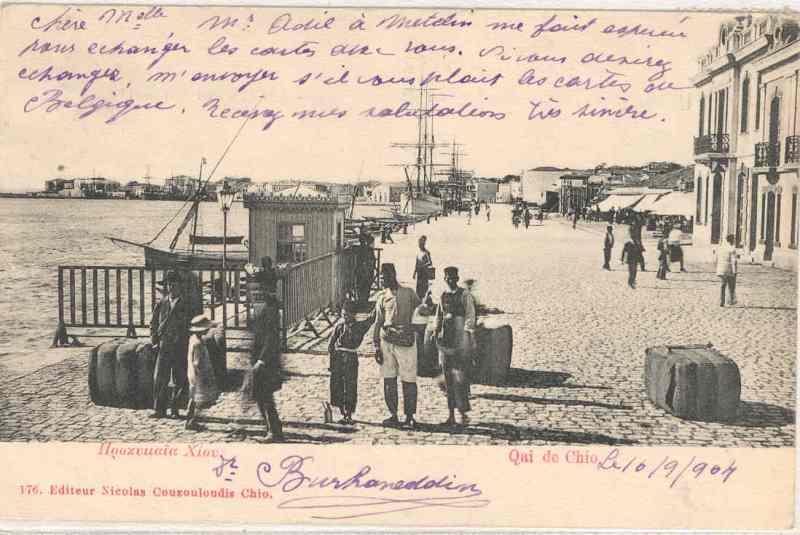 Chère Melle Mr. Adil à Metelin me fait espérer
pour echanger les cartes avec vous. Si vous desirez
echanger, m'envoyer s'il vous plait les cartes de
Belgique. Recevez mes salutations très sincère.
Προκυμαία Χίου.
Qai de Chio.
Le 10/9/904
Dr Burhaneddin
176. Editeur Nicolas Couzouloudis Chio.